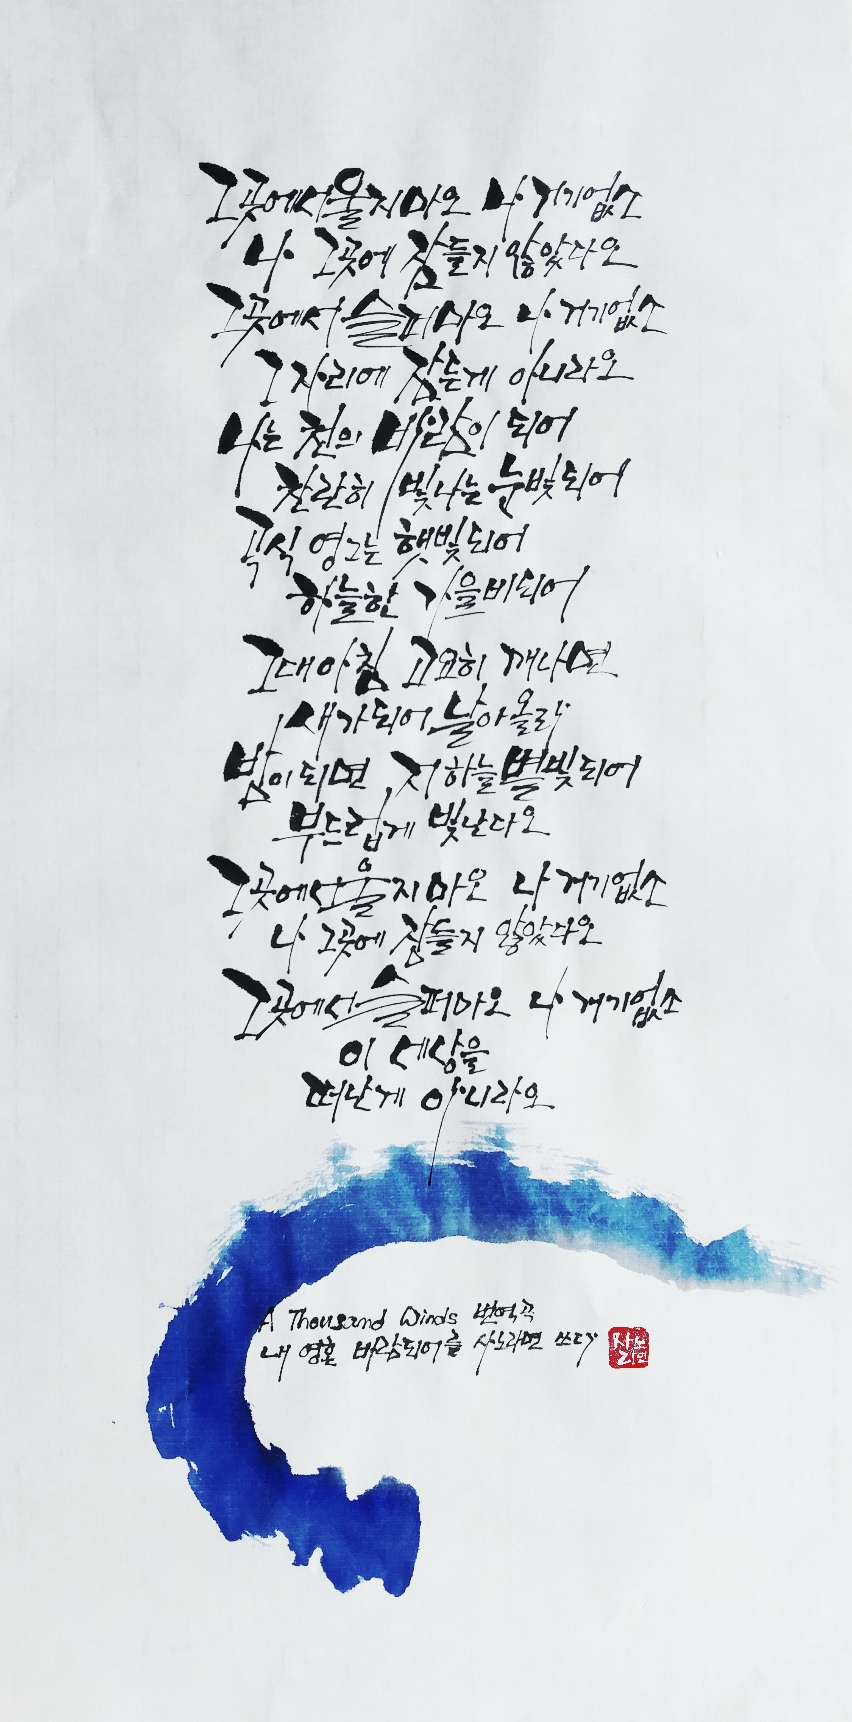 그곳에서 울지마오 나 거기 없소
나 그곳에 잠들지 않았다오
그곳에서 슬퍼마오 나 거기 없소
그 자리에 잠든게 아니라오
나는 천의 바람이 되어
찬란히 빛나는 눈빛되어
곡식 영그는 햇빛되어
하늘한 가을비되어
그대 아침 고요히 깨나면
새가되어 날아올라
밤이되면 저하늘 별빛되어
부드럽게 빛난다오
그곳에서 울지마오 나 거기 없소
나 그곳에 잠들지 않았다오
그곳에서 슬퍼마오 나 거기 없소
이 세상을
떠난게 아니라오
A Thousand Winds 번역곡
내 영혼 바람되어를 사노라면 쓰다
사노라면